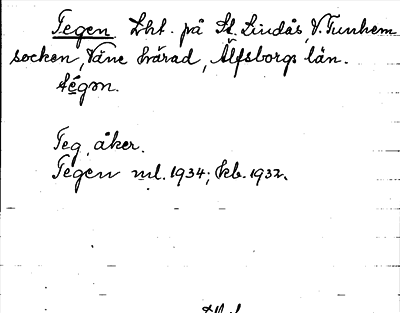 Tegen Lht. på St. Lindås, V. Tunhem
socken, Väne härad, Älfsborgs län.
té̱gən.
Teg, åker.
Tegen ml. 1934; kb. 1932.